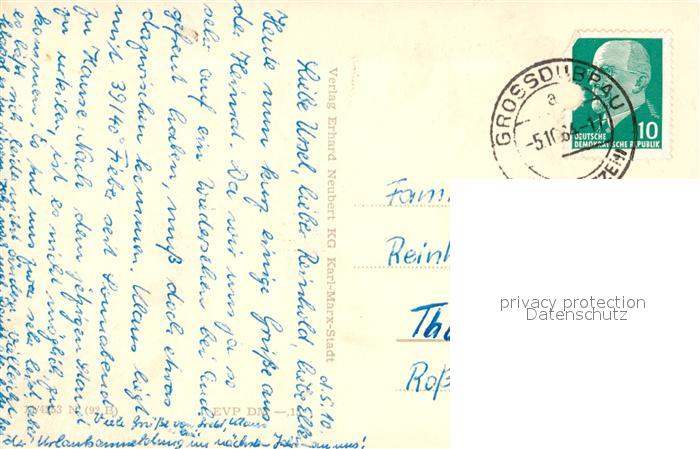 d. 5.10.
Liebe Ursel, lieber Reinhold, liebe Elke
Heute nun kurz einige Grüße aus
der Heimat. Da wir uns ja so
sehr auf ein Wiedersehen bei Euch
gefreut haben, muß doch etwas
dazwischen kommen. Klaus liegt
mit 39/40° Fieber seit Sonnabend
zu Hause. Nach dem jetzigen Stand
zu urteilen, ist es nicht möglich, zu
kommen. Es tut uns zwar sehr leid, aber
es läßt sich leider nicht ändern. Vielleicht
Viele Grüße von
die Urlaubsanmeldung im nächsten Jahr an uns!
Verlag Erhard Neubert KG Karl-Marx-Stadt
(92 B)
EVP DM
GROSSDUBRAU
a
-5.10.64-17
DEUTSCHE
DEMOKRATISCHE REPUBLIK
10
Fam
Reinh
Th
Roß
privacy protection
Datenschutz